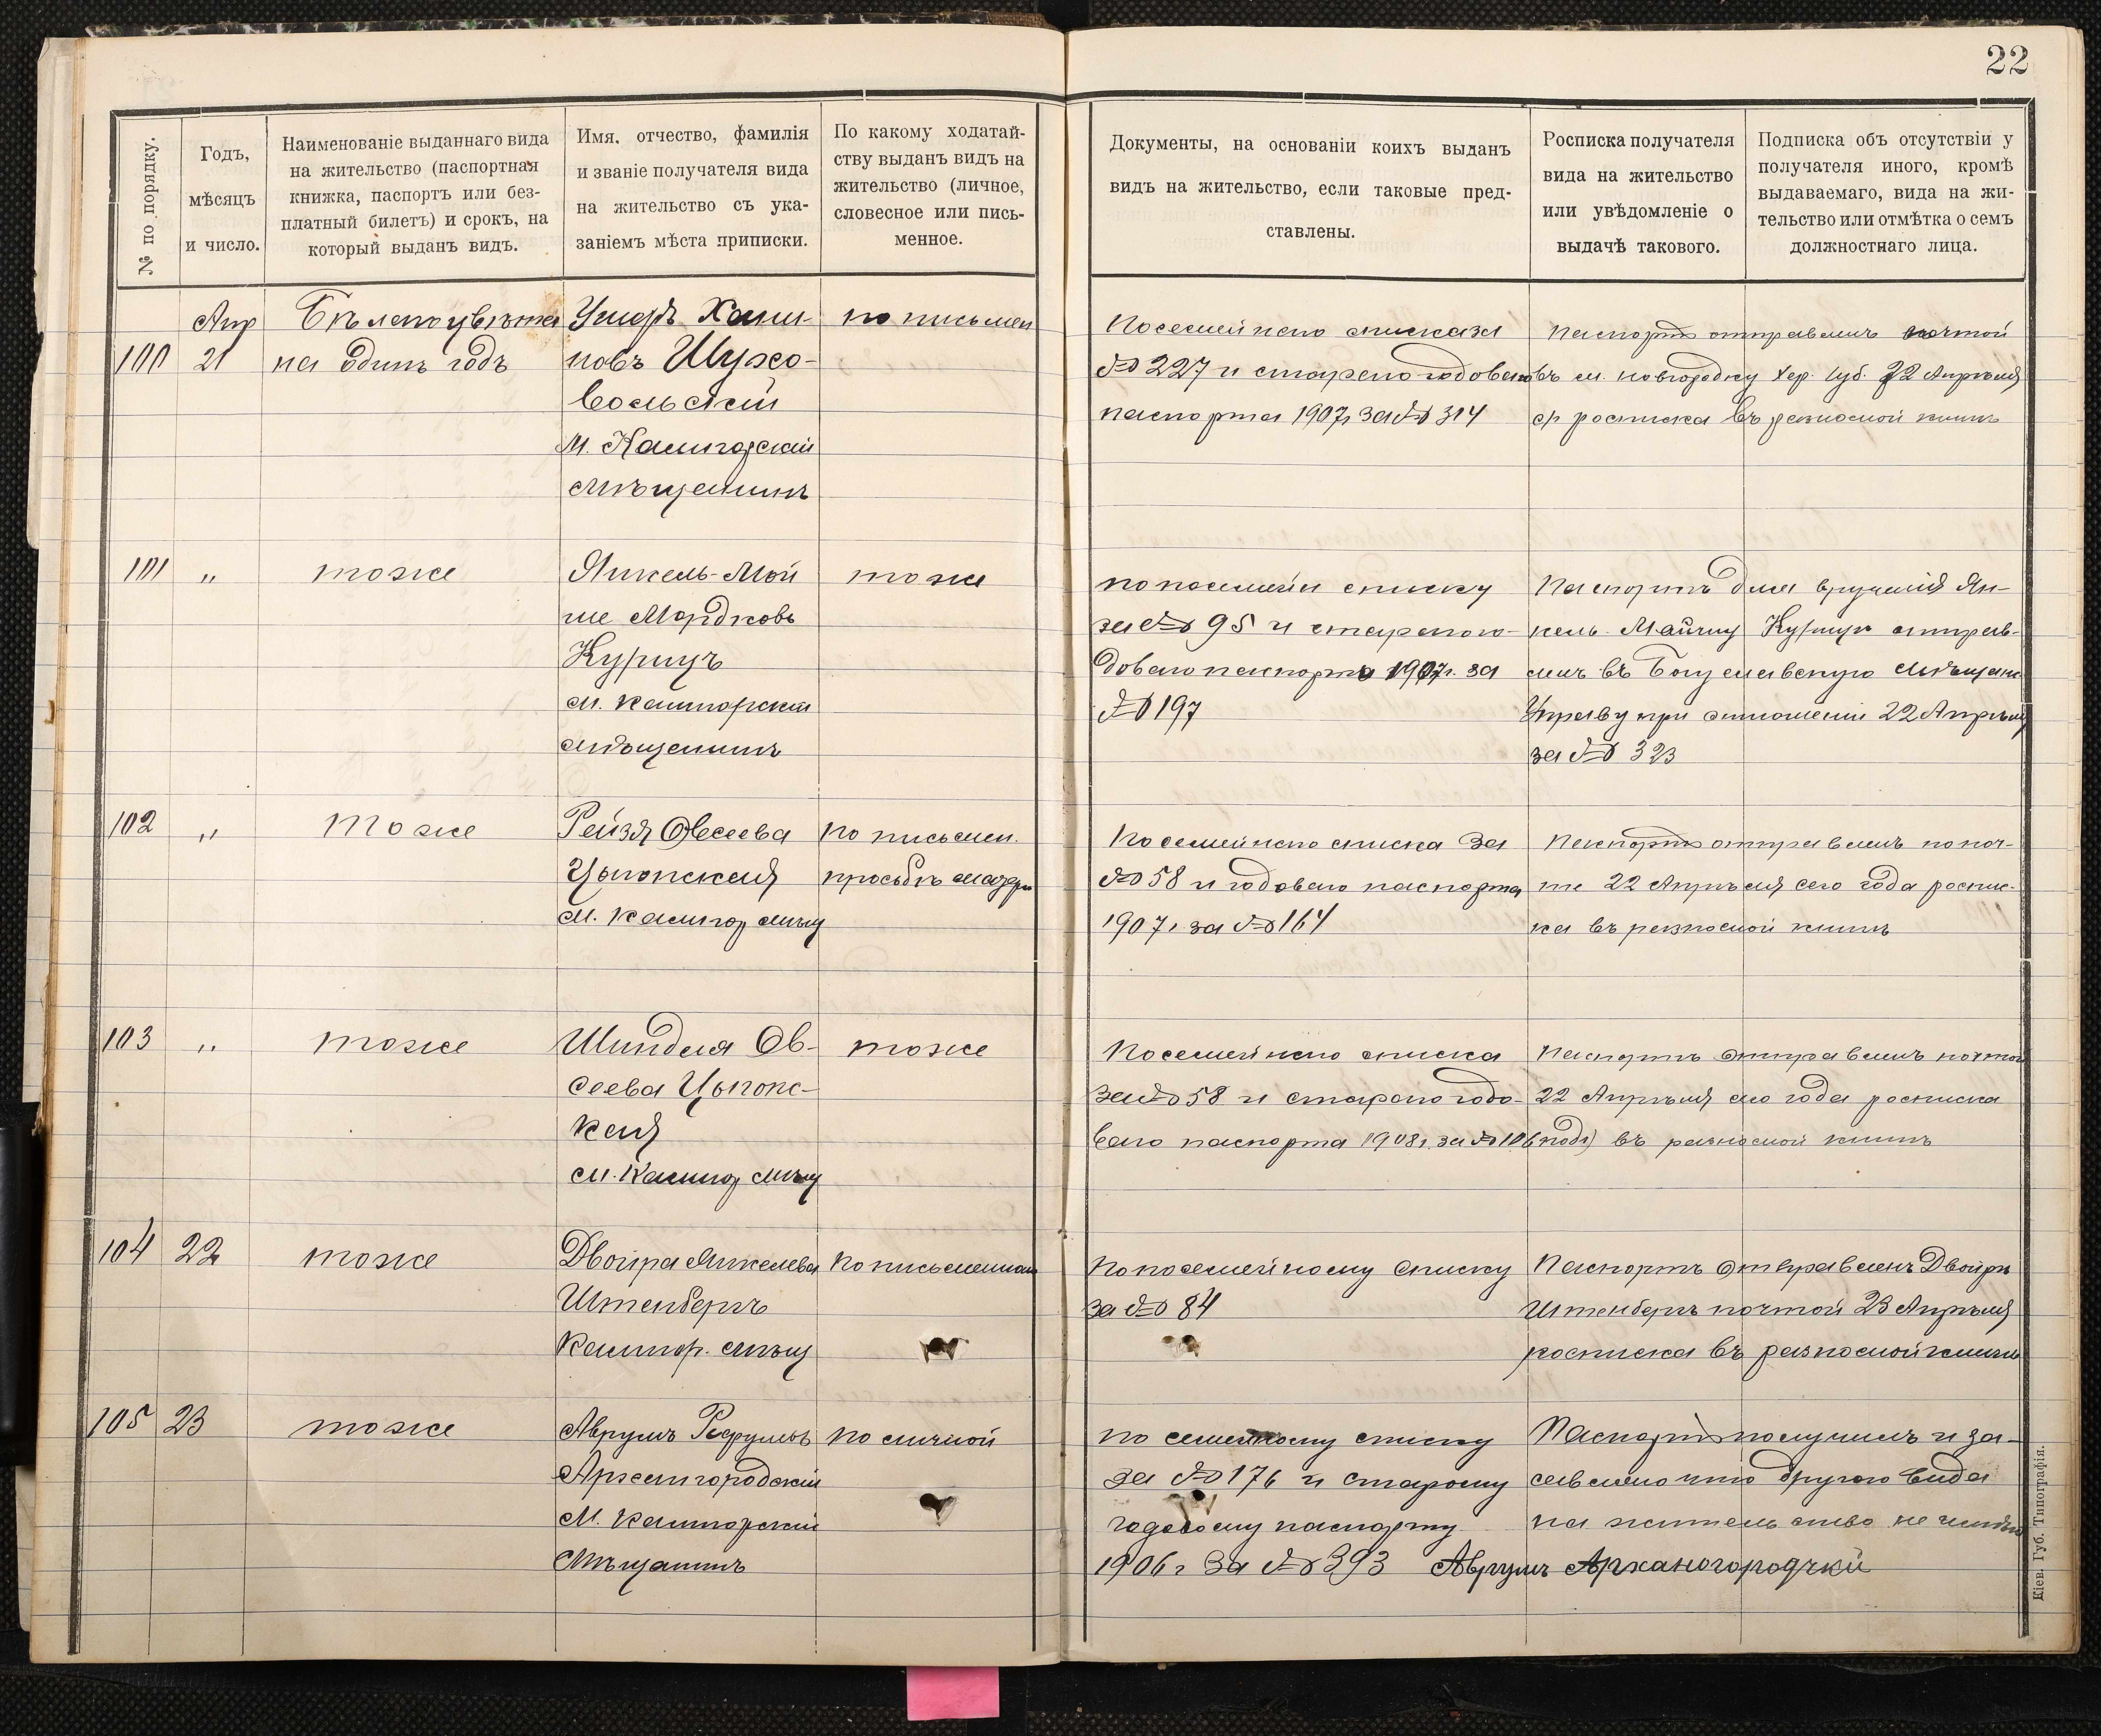 22
№ по порядку.
Годъ,
мѣсяцъ
и число.
Наименованіе выданнаго вида
на жительство (паспортная
книжка, паспортъ или без-
платный билетъ) и срокъ, на
который выданъ видъ.
Имя, отчество, фамилія
и званіе получателя вида
на жительство съ ука-
заніемъ мѣста приписки.
По какому ходатай-
ству выданъ видъ на
жительство (личное,
словесное или пись-
менное.
Документы, на основаніи коихъ выданъ
видъ на жительство, если таковые пред-
ставлены.
Росписка получателя
вида на жительство
или увѣдомленіе о
выдачѣ такового.
Подписка объ отсутствіи у
получателя иного, кромѣ
выдаваемаго, вида на жи-
тельство или отмѣтка о семъ
должностнаго лица.
100
Апр
21
Бѣлаго цвѣта
на одинъ годъ
Хаим-
новъ Шухо-
вольскій
М. Кашгорскій
мѣщанинъ
по письмен
Посемейнаго списка за
№ 227 и стараго годоваго
паспорта 1907 г за № 314
Паспортъ отправленъ почтой
въ м. Новгородку Хер. Губ. 22 Апрѣля
с/г росписка въ разносной книгѣ
101
"
тоже
Янкель-Мой
ше Мордковъ
м. Кашгорскій
мѣщанинъ
тоже
по посемейн списку
за № 95 и стараго го-
доваго паспорта 1907 г. за
№ 197
Паспортъ для врученія Ян-
кель-Мойшу отправ-
ленъ въ Богуславскую Мѣщанс
Управу при отношеніи 22 Апрѣля
за № 323
102
"
Тоже
Рейзя Овсеева
Цыпонская
М. Кашгор мѣщ
по письмен.
просьбѣ матери
Посемейнаго списка за
№ 58 и годоваго паспорта
1907 г за № 164
Паспортъ отправленъ по поч-
те 22 Апрѣля сего года роспис-
ка въ разносной книгѣ
103
"
тоже
Шиндля Ов-
сеева Цыпонс-
кая
м. Кашгор мѣщ
тоже
Посемейнаго списка
за № 58 и стараго годо-
ваго паспорта 1908 г. за № 106
Паспортъ отправленъ почтой
22 Апрѣля сего года росписка
въ разносной книгѣ
104
22
тоже
Двойра Янкелева
Штенбергъ
Кашгор. мѣщ
по письменной
По посемейному списку
за № 84
Паспортъ отправленъ Двойрѣ
Штенбергъ почтой 23 Апрѣля
росписка въ разносной книгѣ
105
23
тоже
Аврумъ
Аркангородскій
М. Кашгорскій
Мѣщанинъ
по личной
по семейному списку
за № 176 и старому
годовому паспорту
1906 г за № 393
Паспортъ получилъ и за-
являю что другого вида
на жительство не имѣю
Аврумъ Арханогородчкій
Кіев. Губ. Типографія.